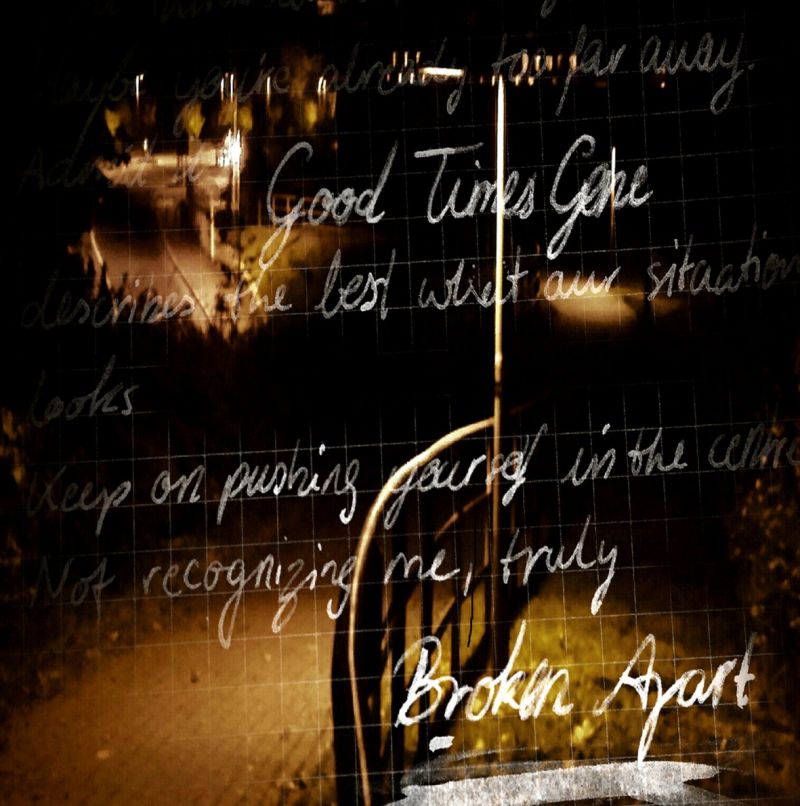 Maybe you're already too far away.
Admit it Good Times Gone
describes the best wheit our situation
looks
Keep on pushing yourself in the centre
Not recognizing me, truly
Broken Apart